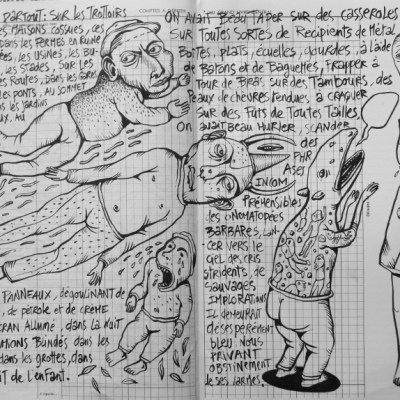 PARTOUT : SUR LES TROTTOIRS
ES MAISONS COSSUES, CES
DANS LES FERMES EN RUINE
ÉES, LES USINES, LES BU-
LES STADES, SUR LES
ES ROUTES, DANS LES GARES
ES PONTS, AU SOMMET
NS LES JARDINS
UX. AU
PANNEAUX, DÉGOULINANT DE
, DE PÉTROLE ET DE CRÈME
CRAN ALLUMÉ, DANS LA NUIT
AMIONS BLINDÉS DANS LES
DANS LES GROTTES, DANS
IT DE L'ENFANT.
ON AVAIT BEAU TAPER SUR DES CASSEROLES
SUR TOUTES SORTES DE RÉCIPIENTS DE MÉTAL
BOÎTES, PLATS, ÉCUELLES, GOURDES, À L'AIDE
DE BATONS ET DE BAGUETTES, FRAPPER À
TOUR DE BRAS SUR DES TAMBOURS, DES
PEAUX DE CHÈVRES TENDUES, À CRAQUER
SUR DES FUTS DE TOUTES TAILLES
ON AVAIT BEAU HURLER, SCANDER
DES
PHR
ASES
INCOM
PRÉHENSIBLES
LES ONOMATOPÉES
BARBARES, LAN-
CER VERS LE
CIEL DES CRIS
STRIDENTS, DE
SAUVAGES
IMPLORATIONS
IL DEMEURAIT
DÉSESPÉRÉMENT
BLEU. NOUS
PRIVANT
OBSTINÉMENT
DE SES LARMES.